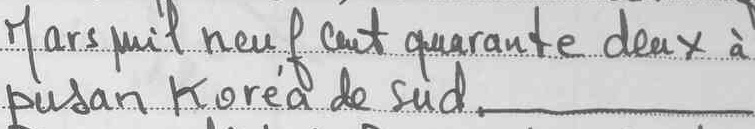 Mars mil neuf cent quarante deux à
pusan Koréa de sud.